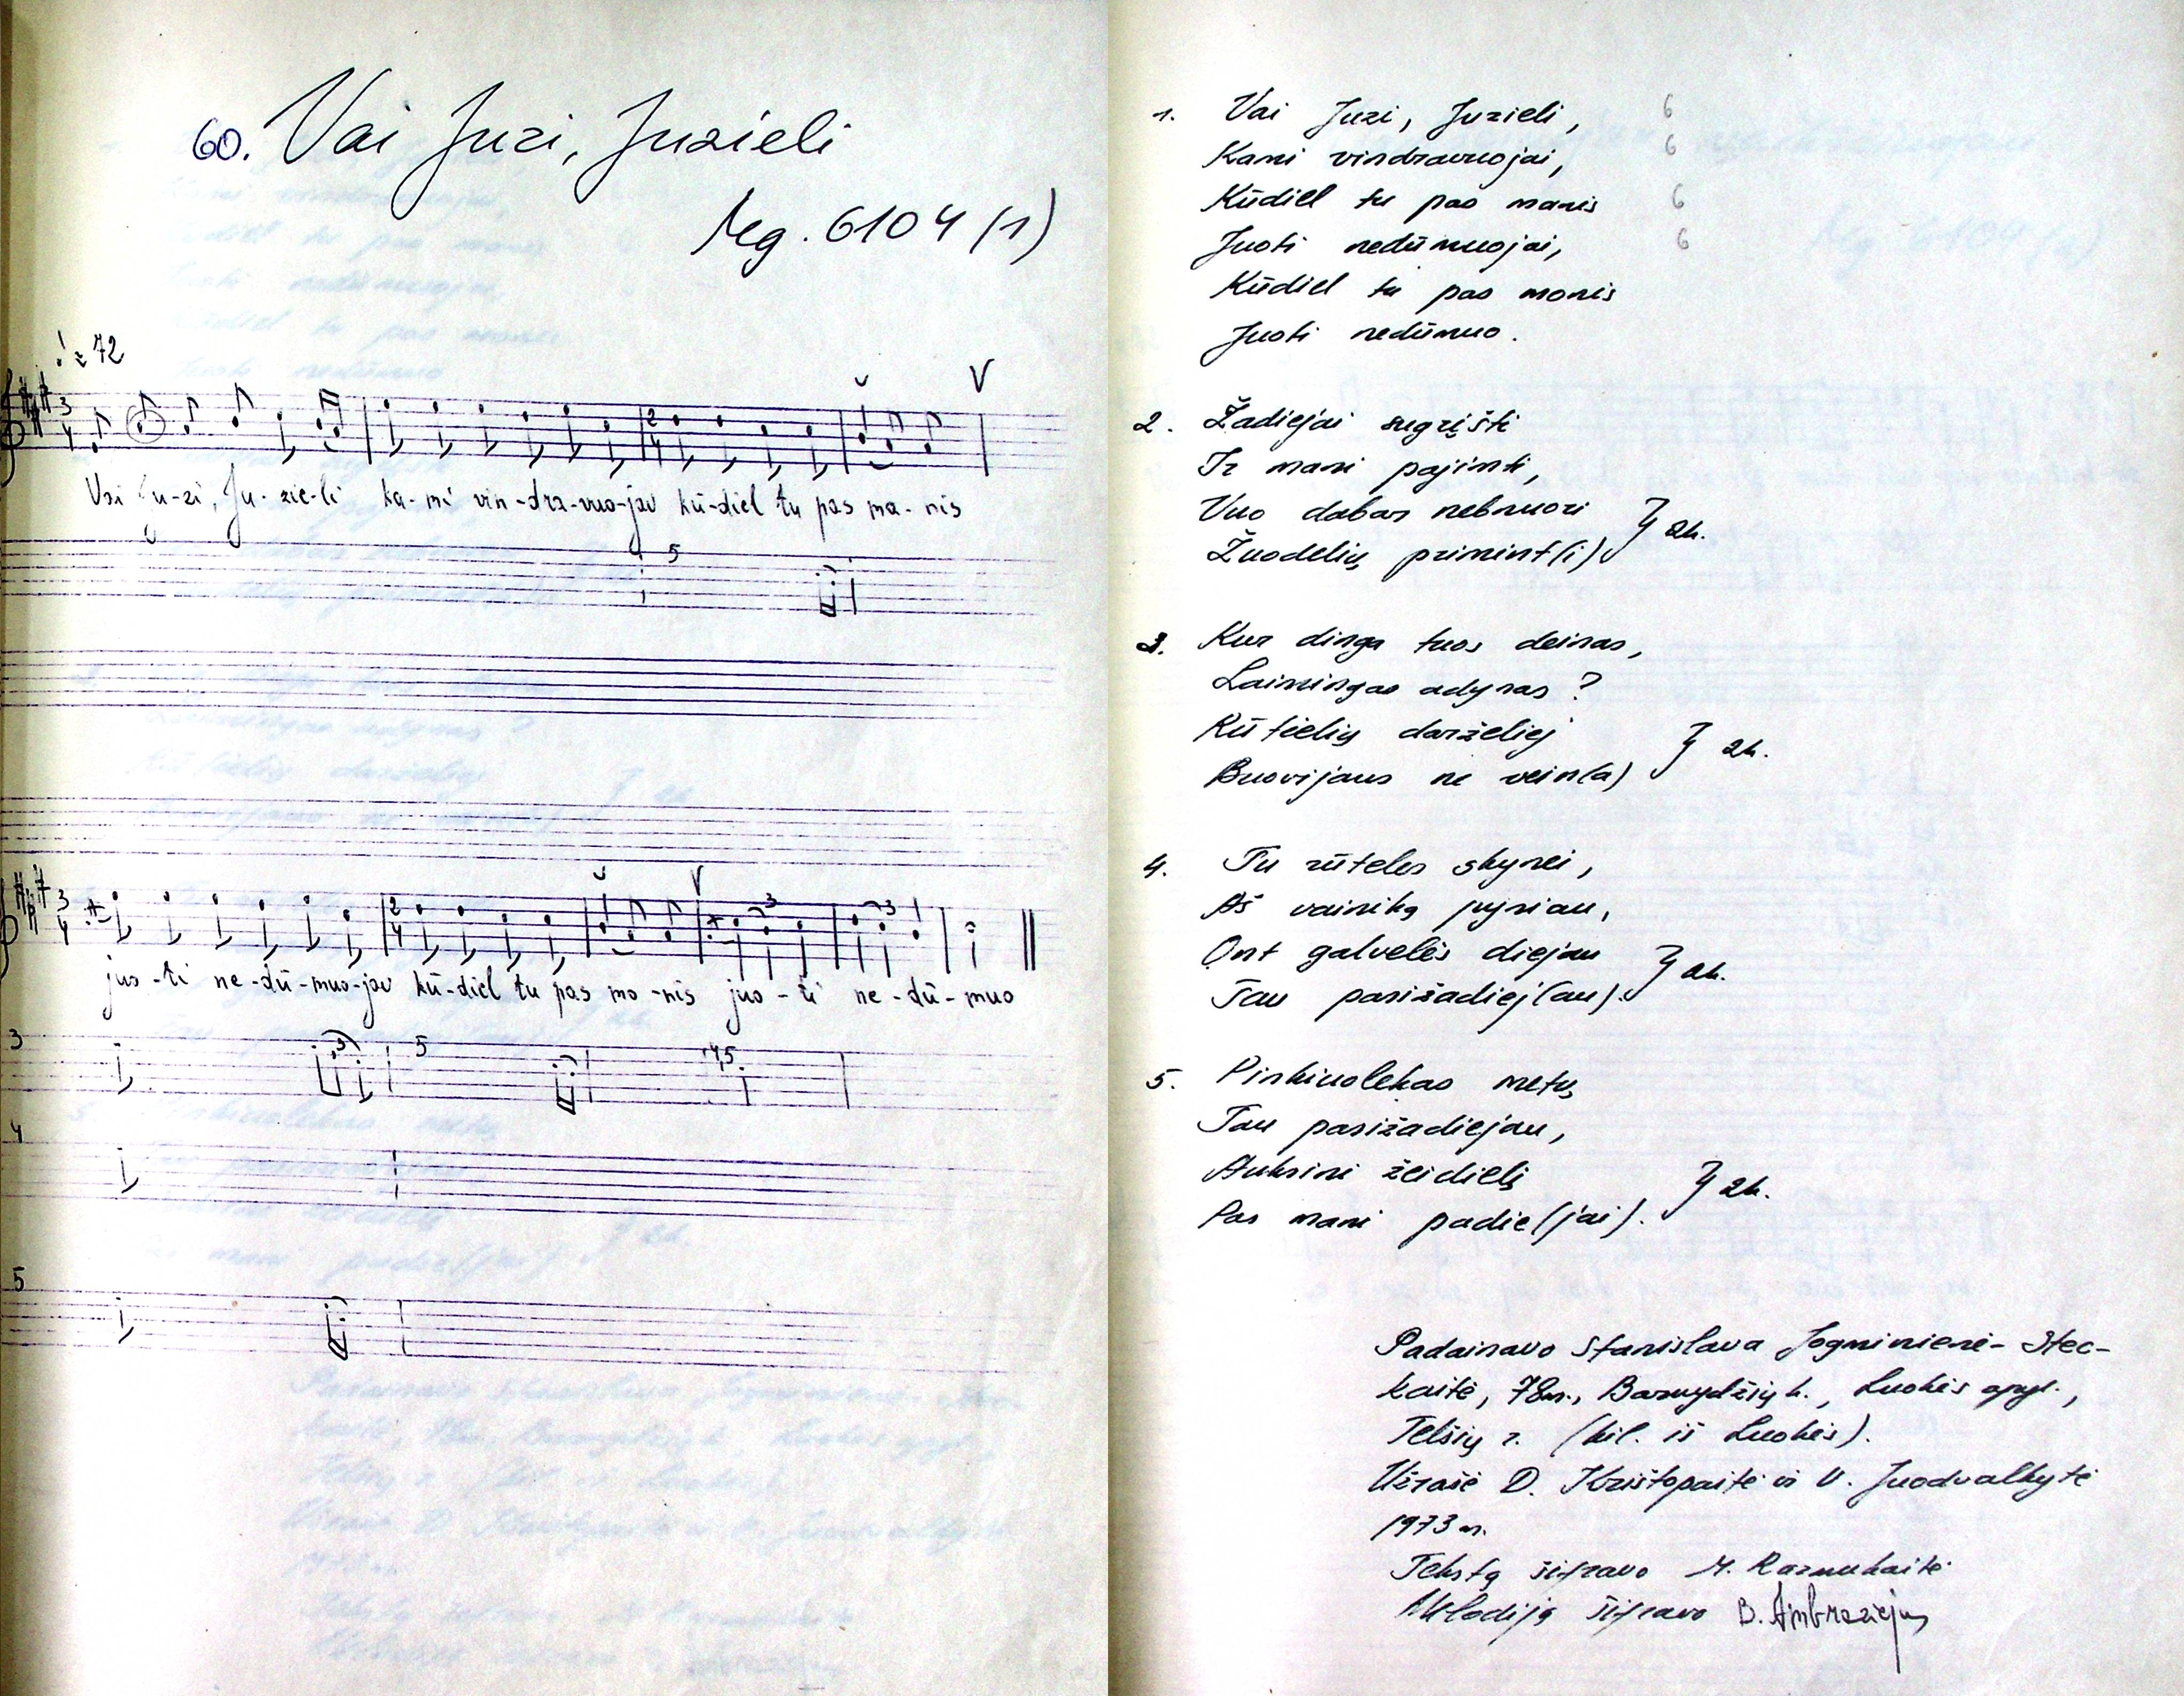 60. Vai Juzi, Juzieli
Mg. 6104 (1)
♩ = 72
Vai Ju-zi, Ju-zie-li ka-mi vin-dra-vuo-jav kū-diel tu pas ma-nis
5
juo-ti ne-dū-muo-jav kū-diel tu pas mo-nis juo-ti ne-dū-muo
3 5 4,5
4
5
1. Vai Juzi, Juzieli, 6
Kami vindravuojai, 6
Kūdiel tu pas manis 6
Juoti nedūmuojai, 6
Kūdiel tu pas monis
Juoti nedūmuo.
2. Žadiejai sugrįšti
Ir mani pajimti,
Vuo dabar nebnuori
Žuodelių primint(i) } 2k.
3. Kur dinga tuos deinas,
Laimingas adynas?
Rūtielių darželiej
Buovijaus ne vein(a) } 2k.
4. Tu rūteles skynei,
Aš vainiką pyniau,
Ont galvelės diejau
Tau pasižadiej(au). } 2k.
5. Pinkiuolekas metų
Tau pasižadiejau,
Auksini žeidielį
Pas mani padie(jai). } 2k.
Padainavo Stanislava Jogminienė-Stec-
kaitė, 78m., Barvydžių k., Luokės apyl.,
Telšių r. (kil. iš Luokės).
Užrašė D. Krištopaitė ir V. Juodvalkytė
1973 m.
Tekstą šifravo M. Razmukaitė
Melodiją šifravo B. Ambraziejus